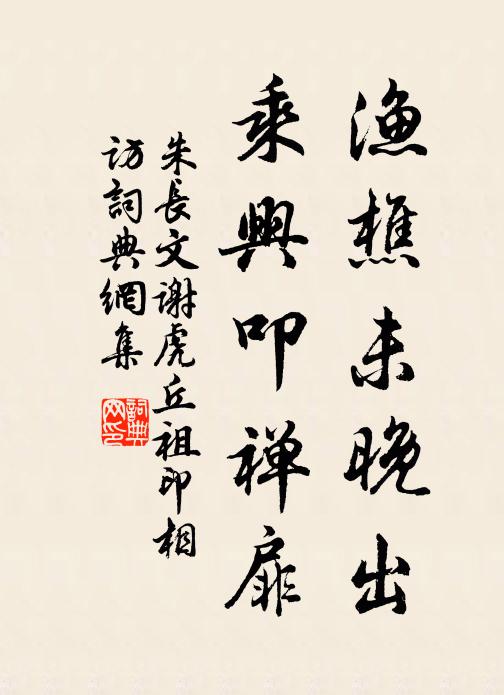 漁樵未晚出
乘興叩禅扉
朱長文謝虎丘祖印相
訪詞典網集
詞典
网印